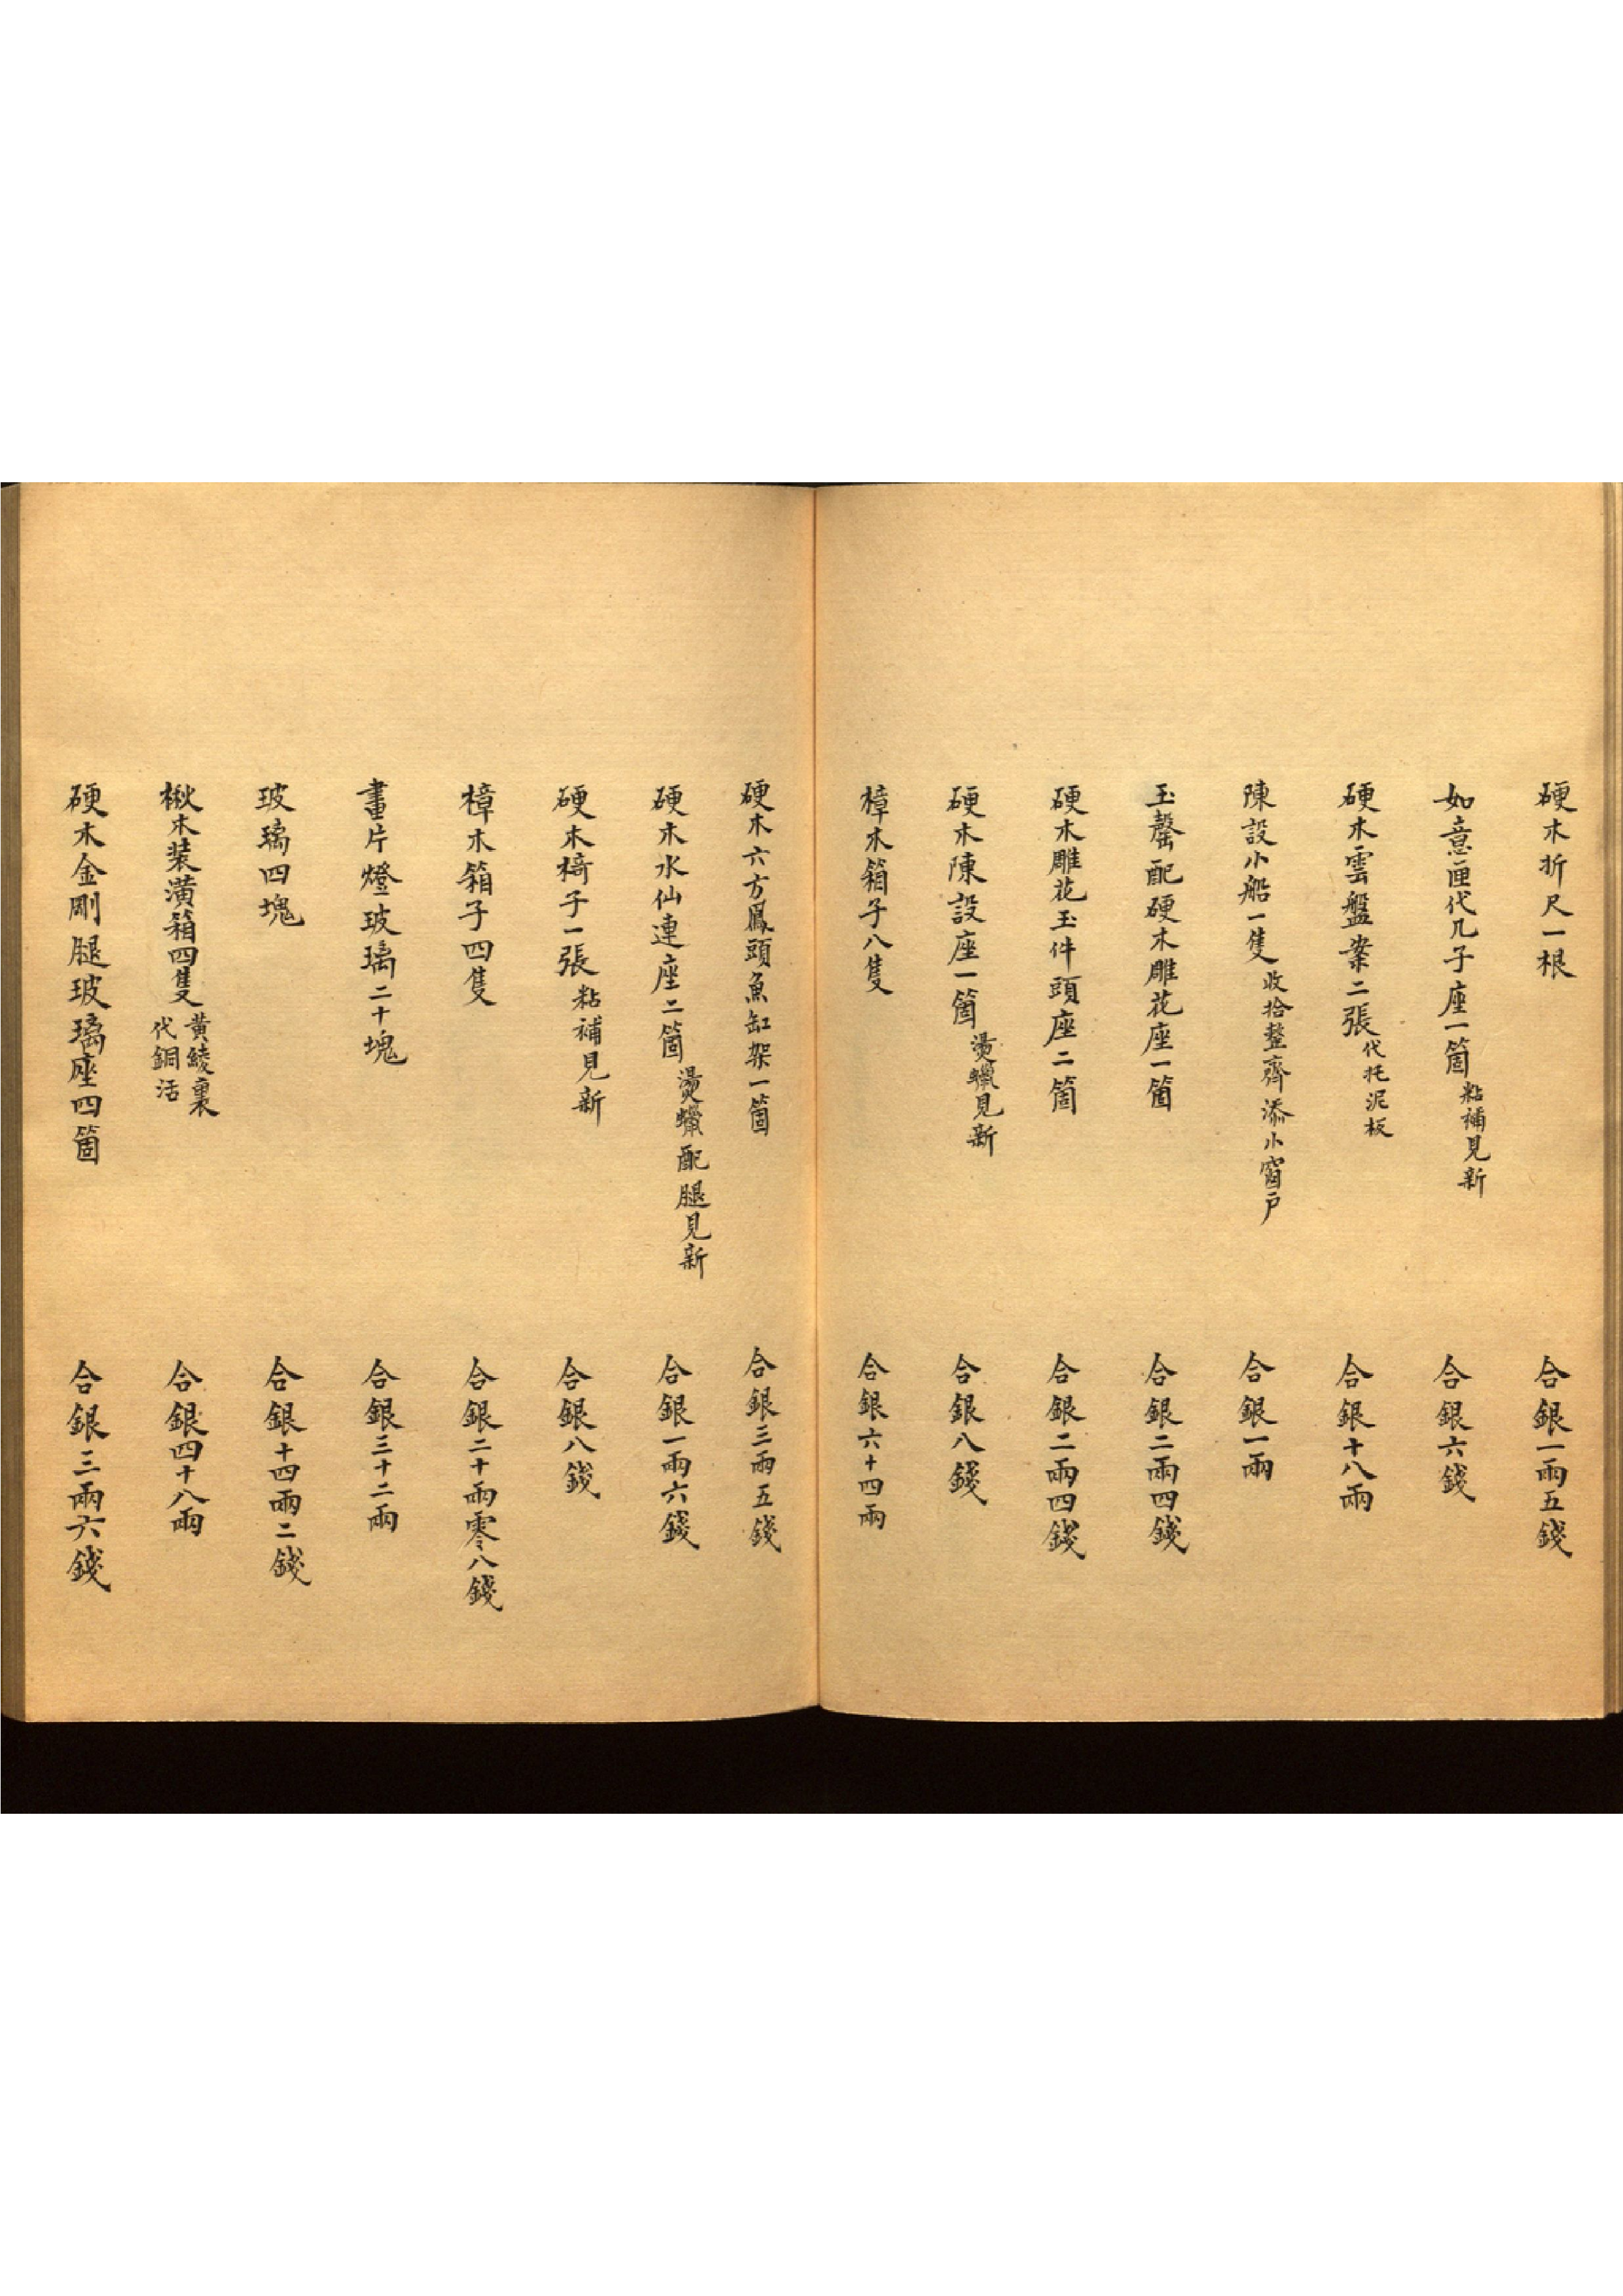 硬木折尺一根 合銀一兩五錢
如意匣代几子座一箇粘補見新 合銀六錢
硬木雲盤案二張代托泥板 合銀十八兩
陳設小船一隻收拾整齊添小窗户 合銀一兩
玉罄配硬木雕花座一箇 合銀二兩四錢
硬木雕花玉件頭座二箇 合銀二兩四錢
硬木陳設座一箇燙蠟見新 合銀八錢
樟木箱子八隻 合銀六十四兩
硬木六方鳳頭魚缸架一箇 合銀三兩五錢
硬木水仙連座二箇燙蠟配腿見新 合銀一兩六錢
硬木椅子一張粘補見新 合銀八錢
樟木箱子四隻 合銀二十兩零八錢
畫片燈玻璃二十塊 合銀三十二兩
玻璃四塊 合銀十四兩二錢
楸木裝潢箱四隻黄綾裏代銅活 合銀四十八兩
硬木金剛腿玻璃座四箇 合銀三兩六錢